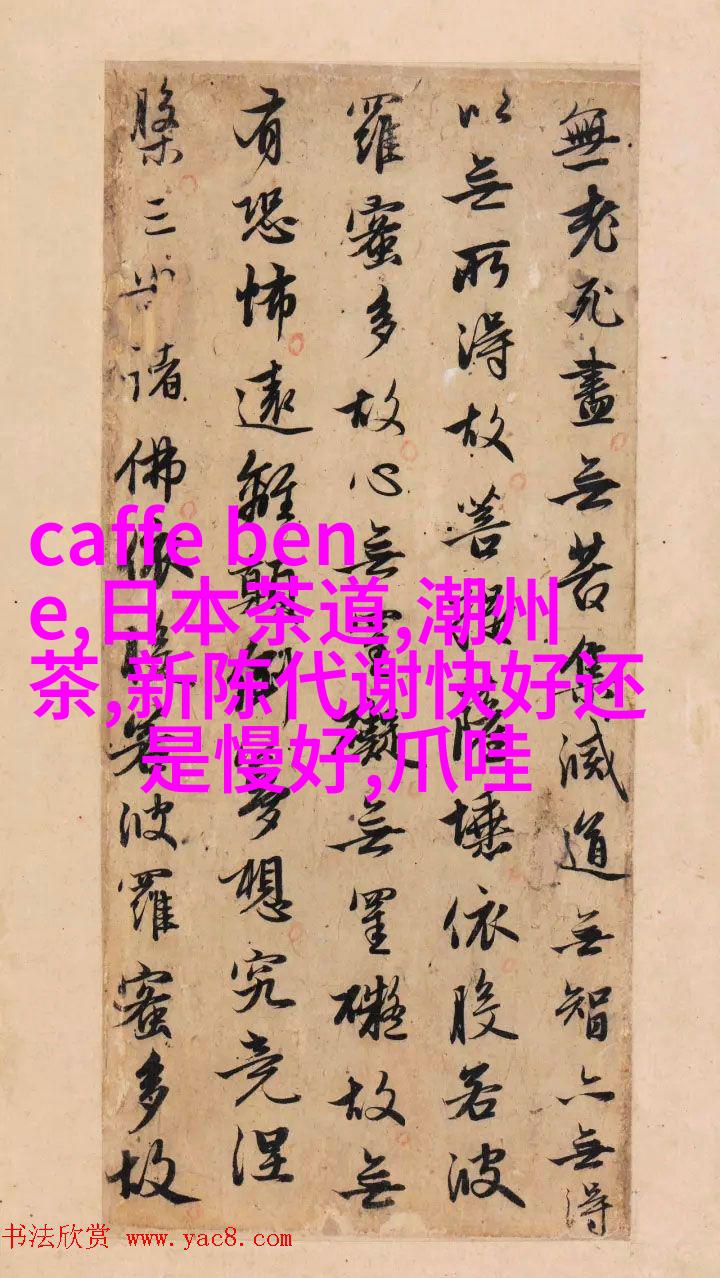 無老死盡無苦集滅道無智亦無得
以無所得故菩提薩埵依般若波
羅蜜多故心無罣礙無罣礙故無
有恐怖遠離顛倒夢想究竟涅
槃三世諸佛依般若波羅蜜多故
caffe ben
e,日本茶道,潮州
茶,新陈代谢快好还
是慢好,爪哇
书法欣赏 www.yac8.com